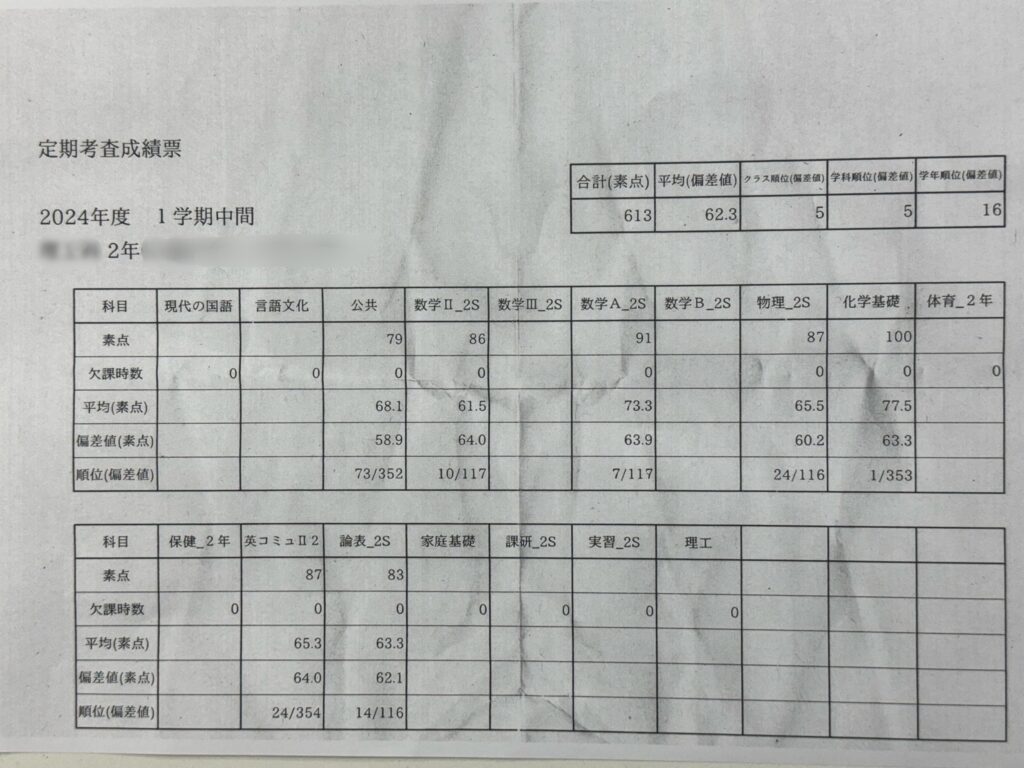 定期考査成績票
合計(素点) 平均(偏差値) クラス順位(偏差値) 学科順位(偏差値) 学年順位(偏差値)
613 62.3 5 5 16
2024年度 1学期中間
2年
科目 現代の国語 言語文化 公共 数学Ⅱ_2S 数学Ⅲ_2S 数学A_2S 数学B_2S 物理_2S 化学基礎 体育_2年
素点 79 86 91 87 100
欠課時数 0 0 0 0 0 0 0 0
平均(素点) 68.1 61.5 73.3 65.5 77.5
偏差値(素点) 58.9 64.0 63.9 60.2 63.3
順位(偏差値) 73/352 10/117 7/117 24/116 1/353
科目 保健_2年 英コミュⅡ2 論表_2S 家庭基礎 課研_2S 実習_2S 理工
素点 87 83
欠課時数 0 0 0 0 0 0 0
平均(素点) 65.3 63.3
偏差値(素点) 64.0 62.1
順位(偏差値) 24/354 14/116